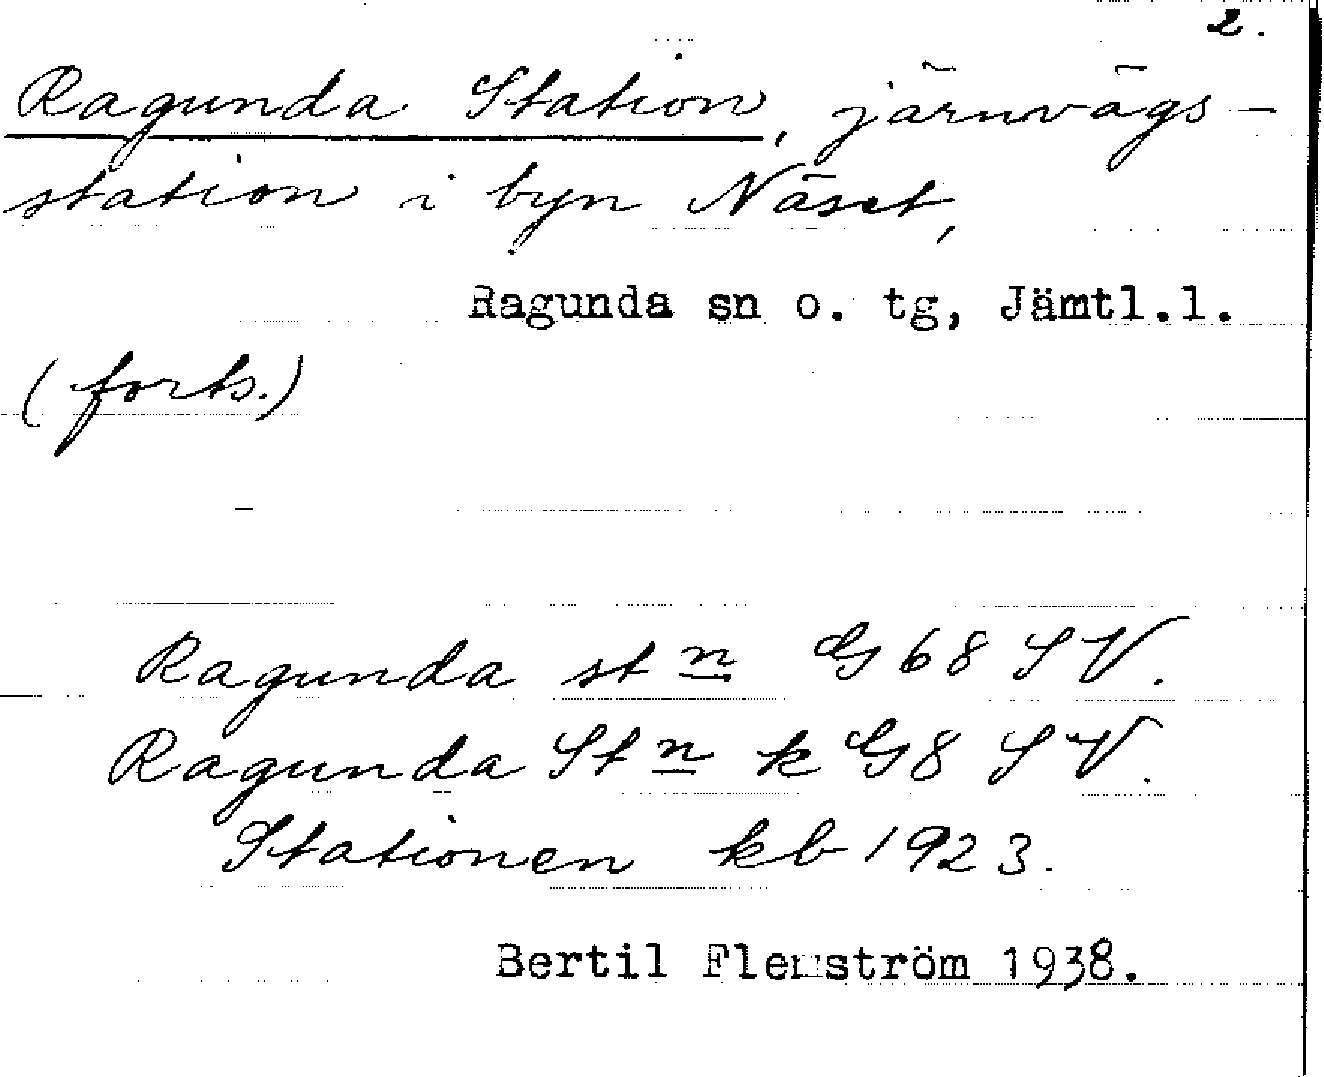 2.
Ragunda Station, järnvägs-
station i byn Näset,
Ragunda sn o. tg, Jämtl.l.
(forts.)
Ragunda stn G 68 SV.
Ragunda Stn k G8 SV.
Stationen kb 1923.
Bertil Flemström 1938.